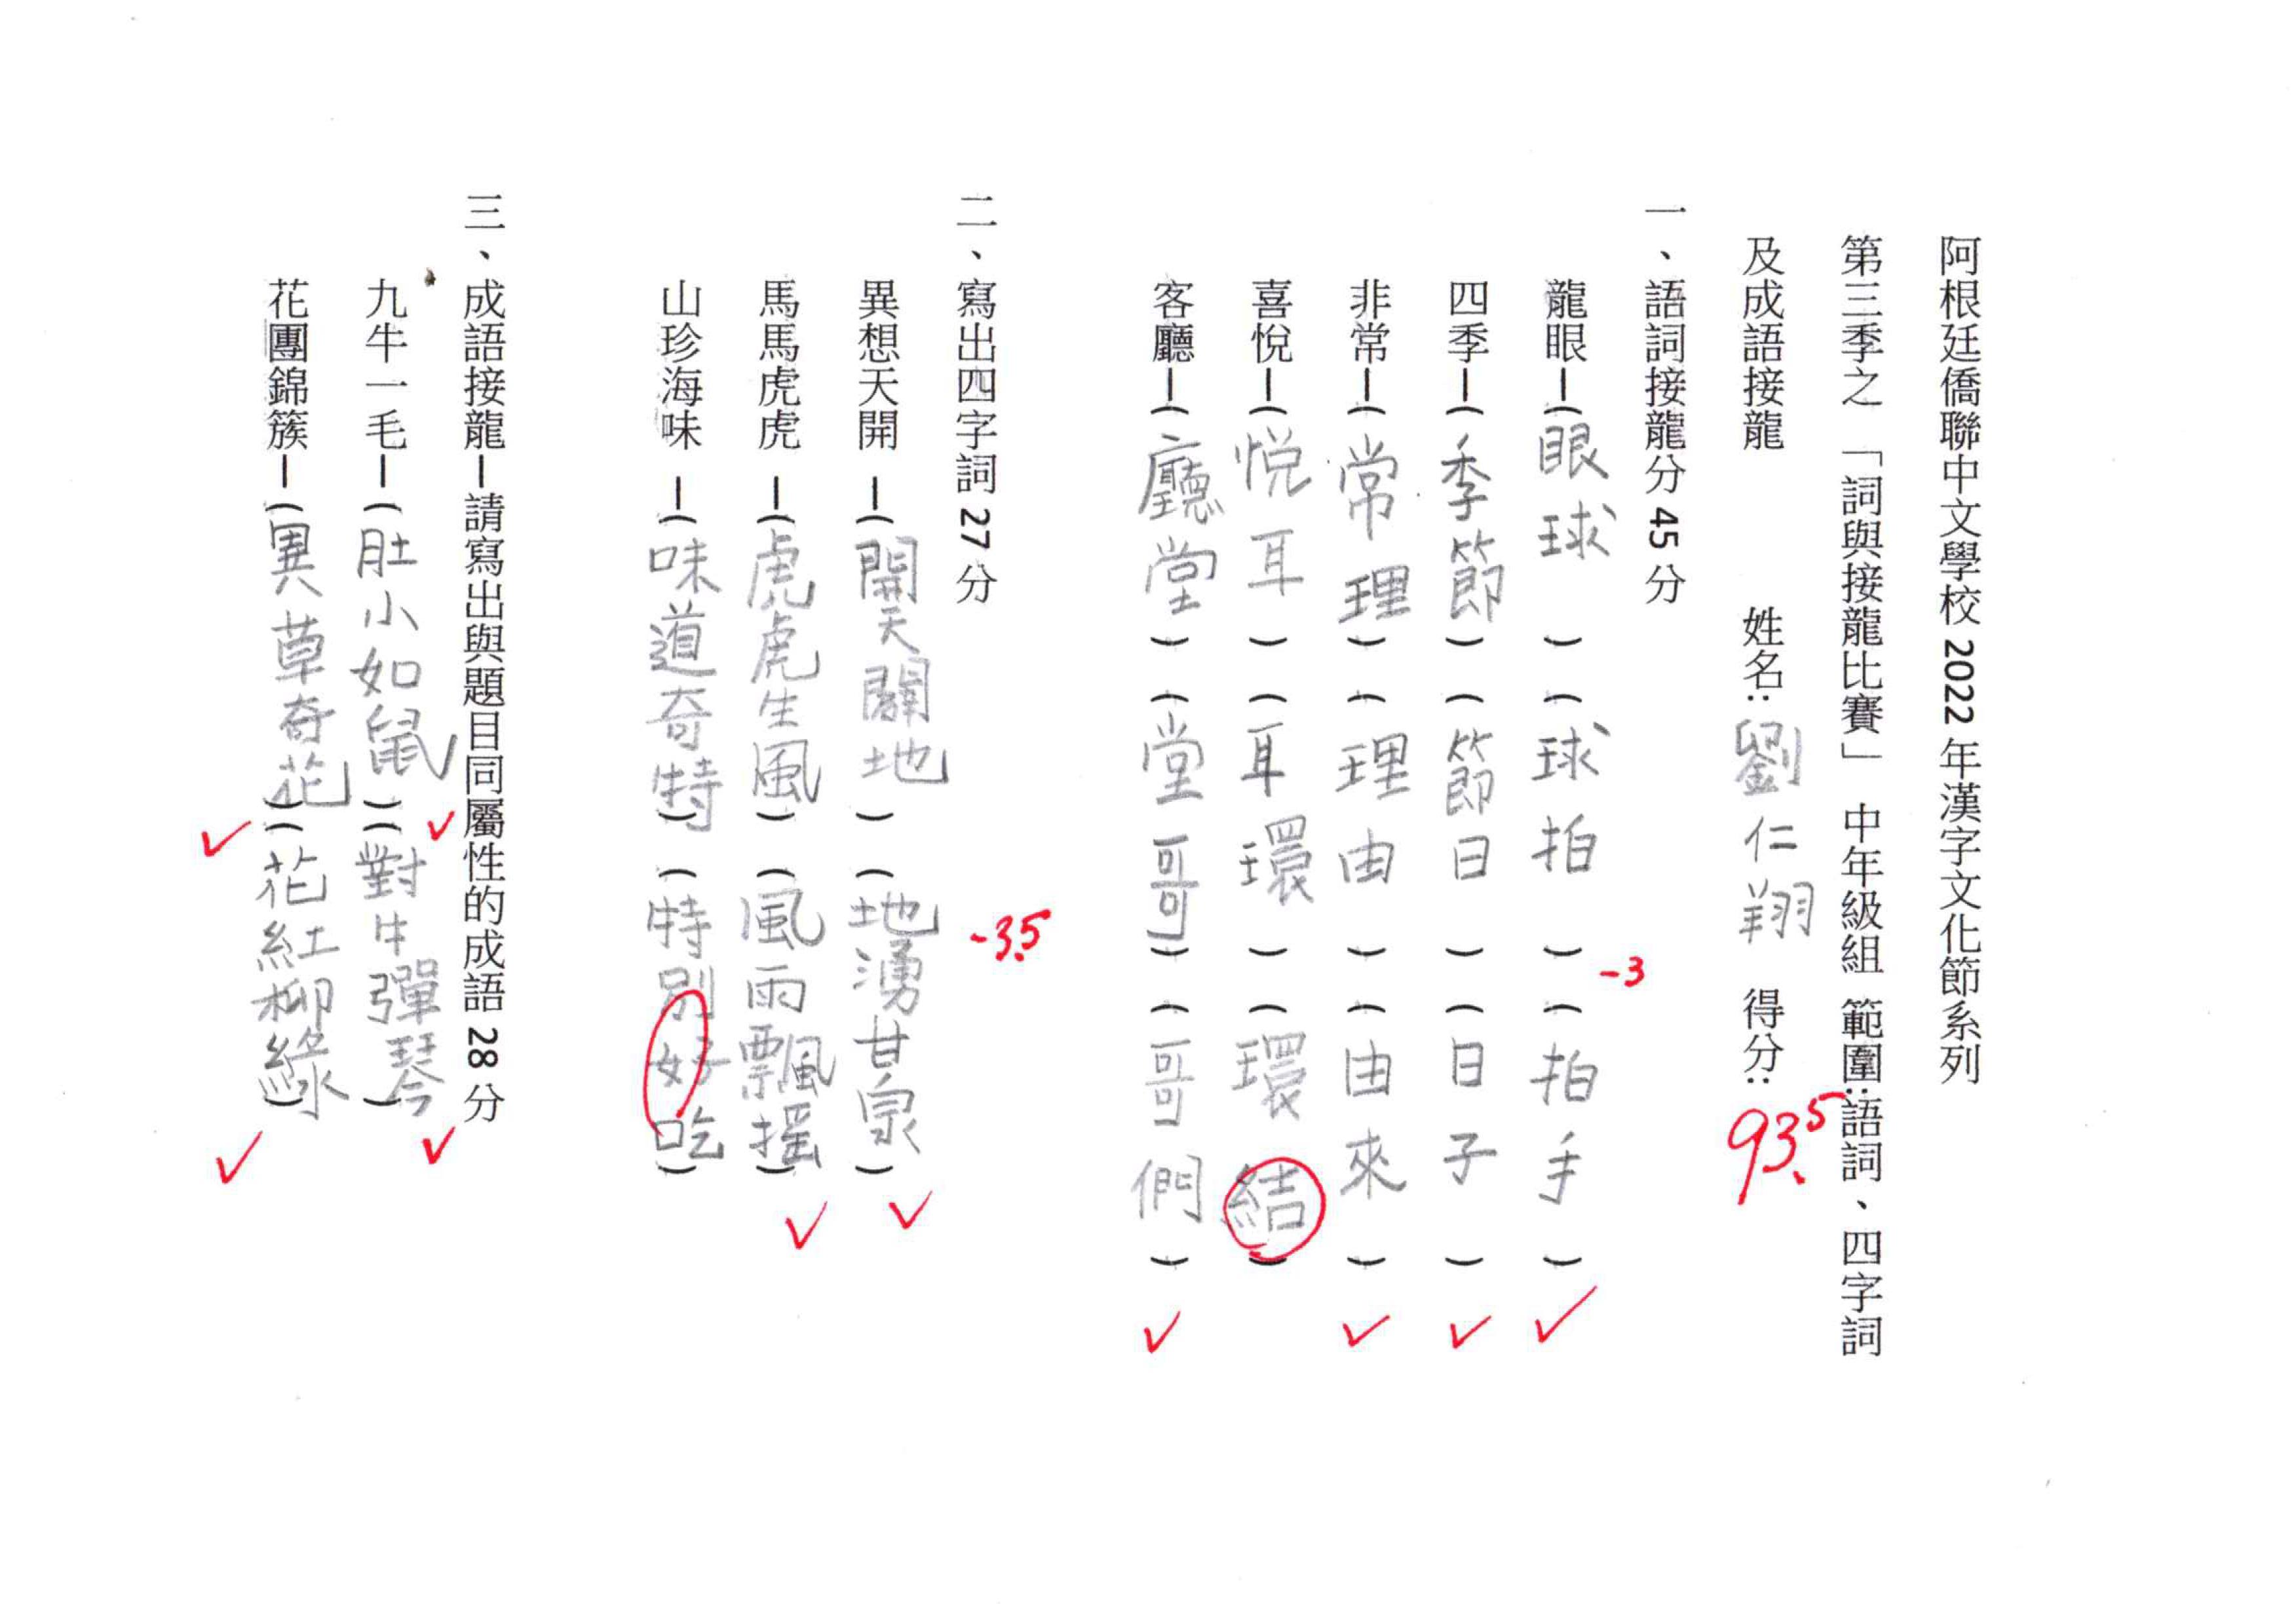 阿根廷僑聯中文學校 2022 年漢字文化節系列
第三季之 「詞與接龍比賽」 中年級組 範圍:語詞、四字詞
及成語接龍 姓名: 劉仁翔 得分: 93.5
一、語詞接龍分 45 分 -3
龍眼—(眼球)(球拍)(拍手)
四季—(季節)(節日)(日子)
非常—(常理)(理由)(由來)
喜悅—(悅耳)(耳環)(環結)
客廳—(廳堂)(堂哥)(哥們)
二、寫出四字詞 27 分 -3.5
異想天開 —(開天闢地)(地湧甘泉)
馬馬虎虎 —(虎虎生風)(風雨飄搖)
山珍海味 —(味道奇特)(特別好吃)
三、成語接龍—請寫出與題目同屬性的成語 28 分
九牛一毛—(肚小如鼠)(對牛彈琴)
花團錦簇—(異草奇花)(花紅柳綠)